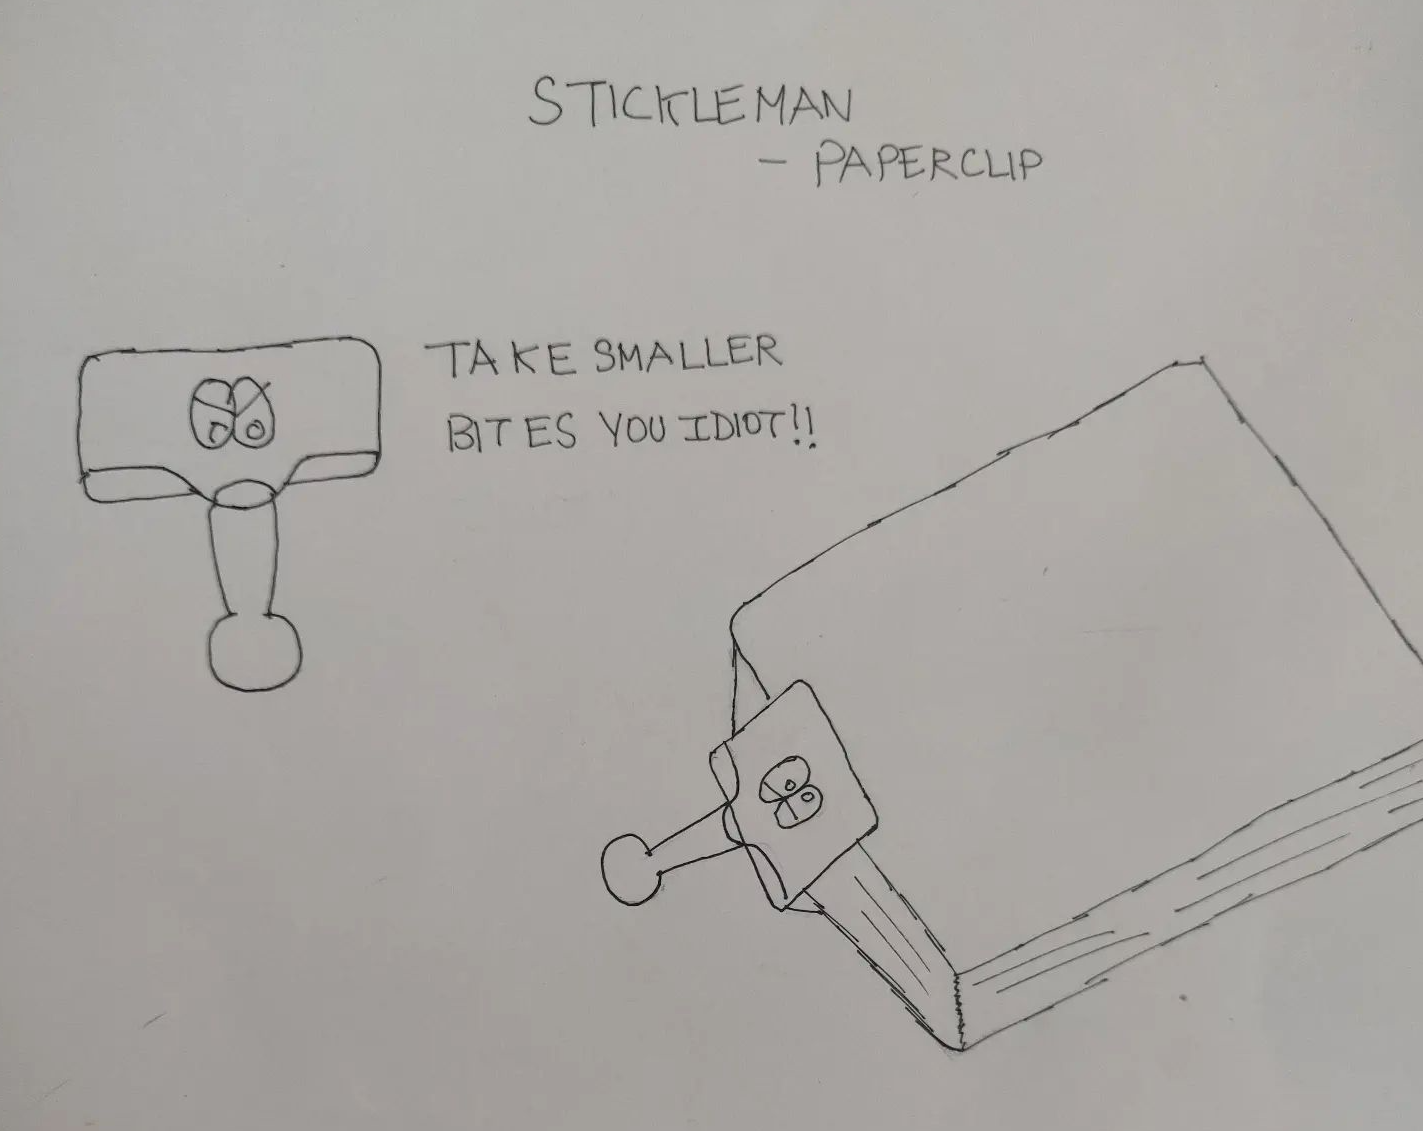 STICKLEMAN
- PAPERCLIP
TAKE SMALLER
BITES YOU IDIOT!!